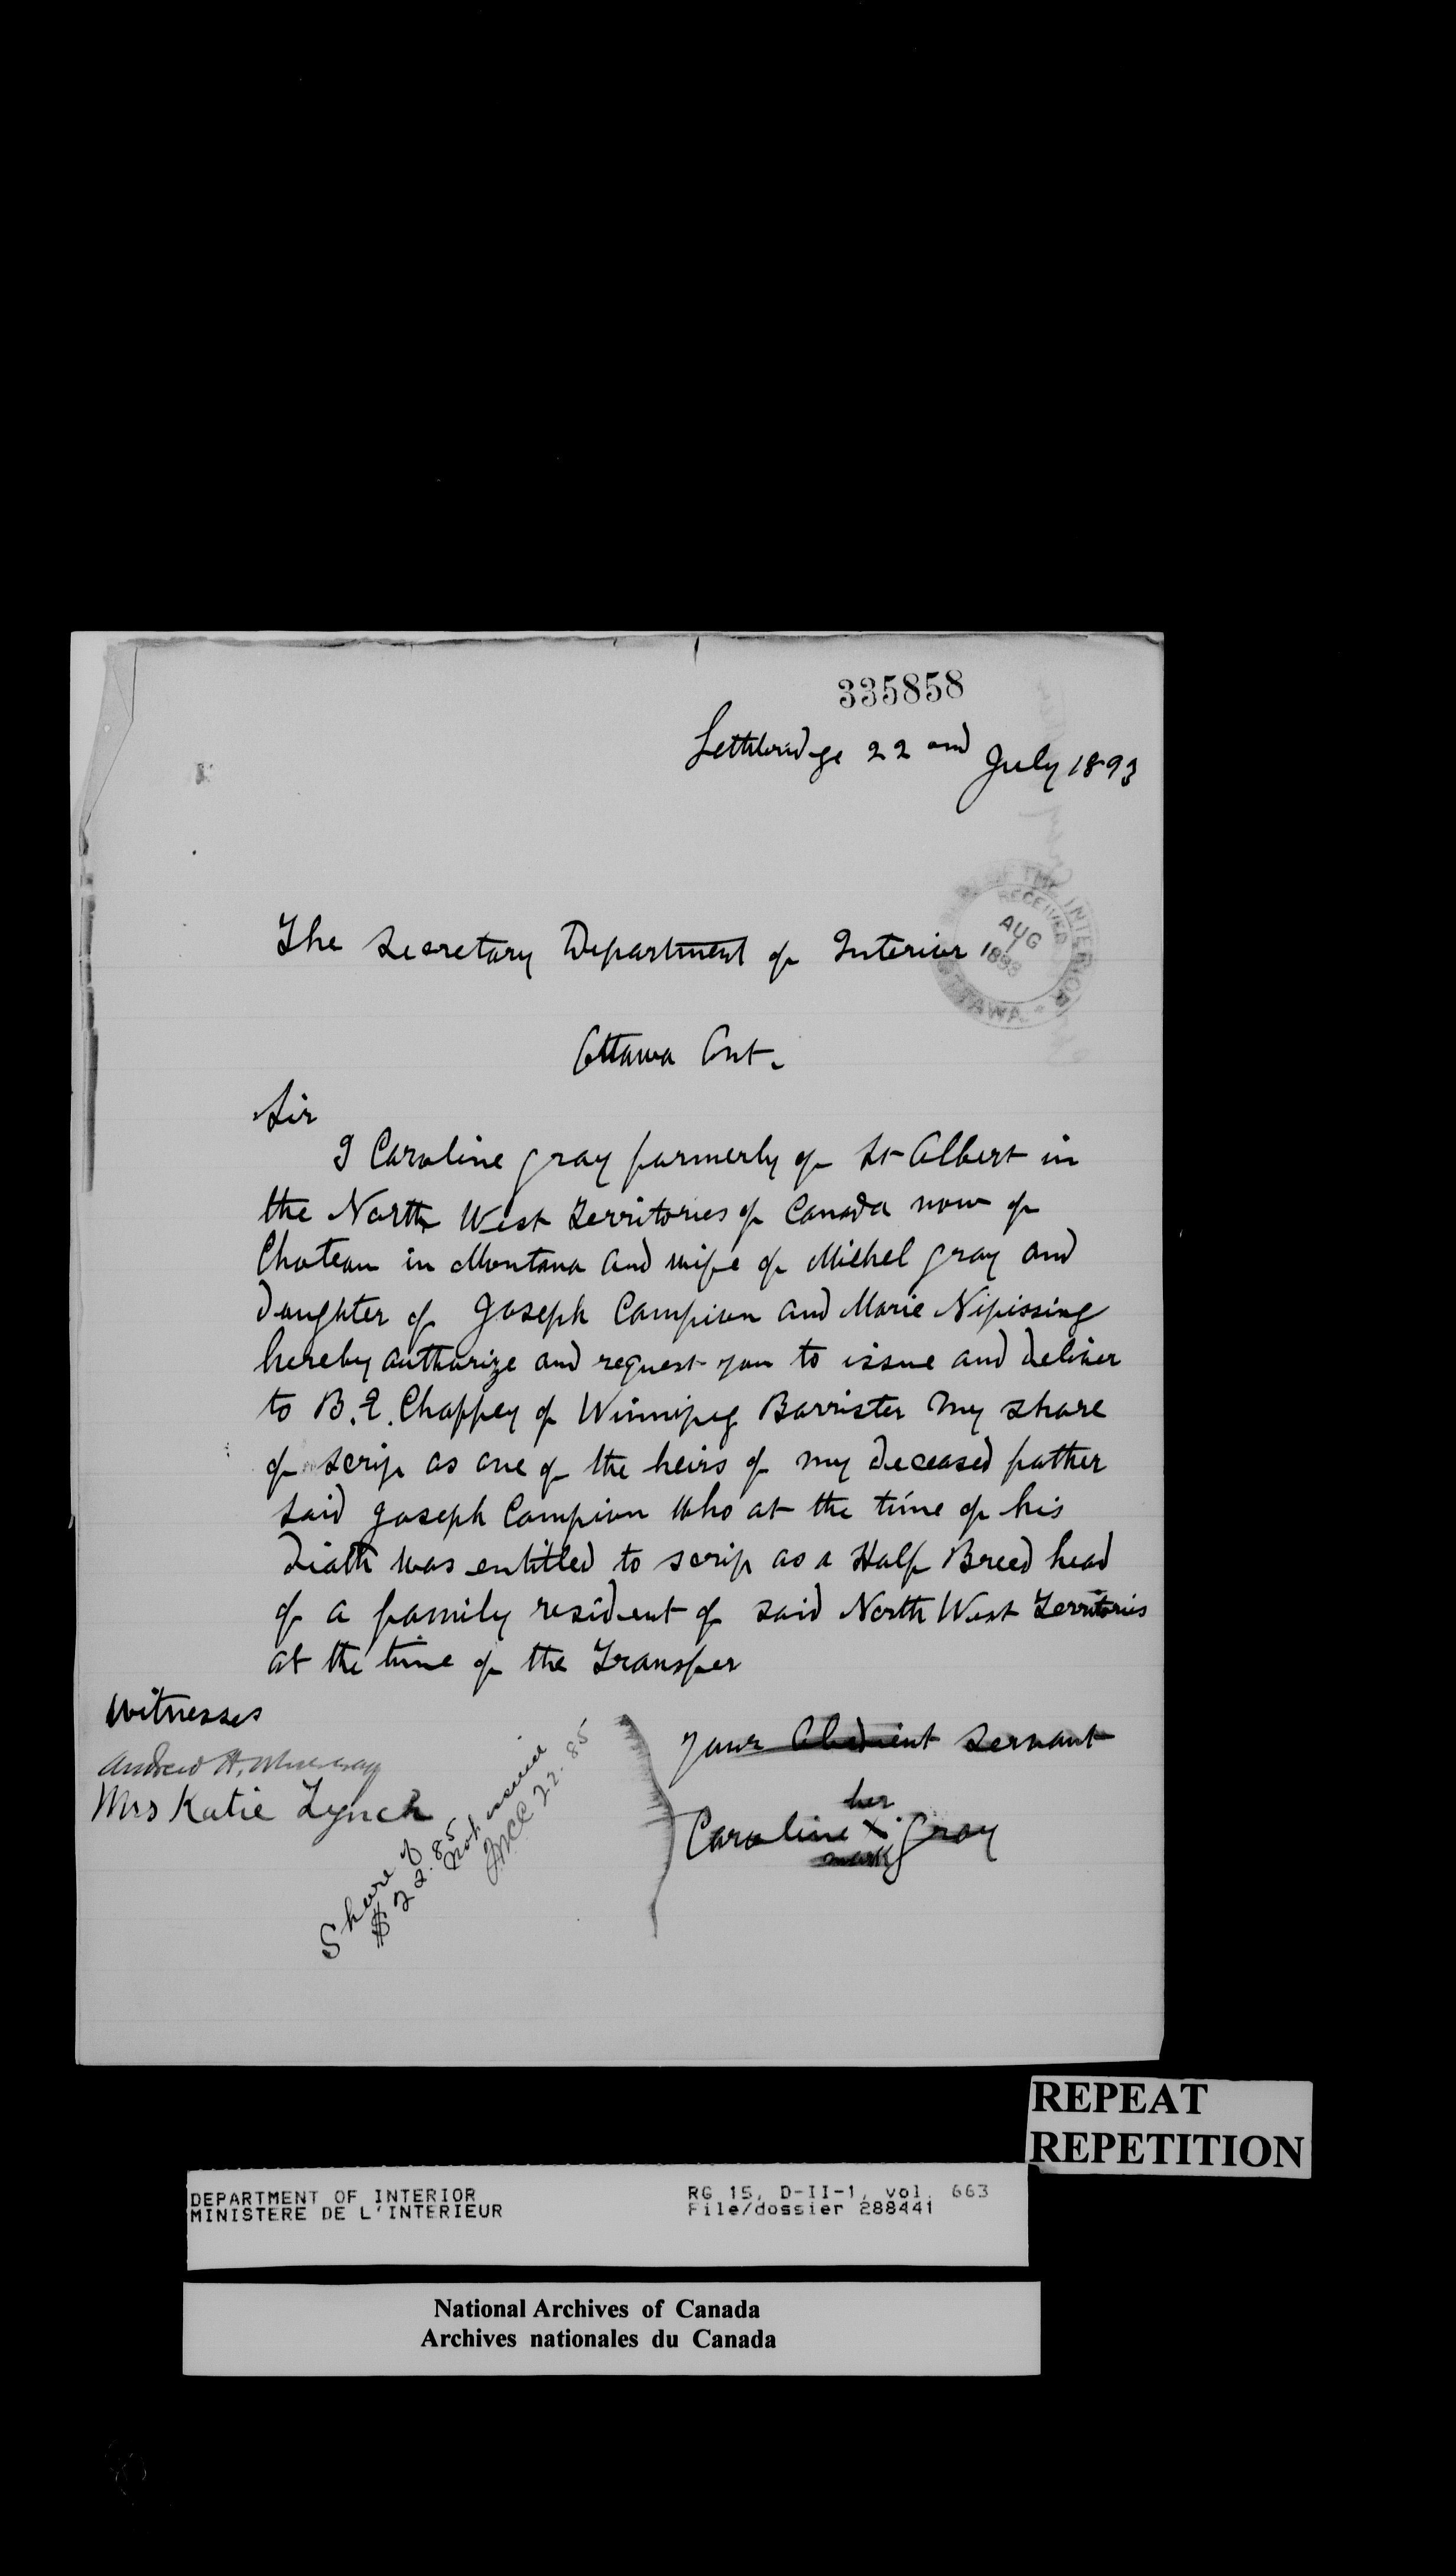 335858
Lethbridge 22 nd July 1893
OF THE INTERIOR
RECEIVED
AUG
1893
OTTAWA
The Secretary Department of Interior
Ottawa Ont.
Sir
I Caroline Gray formerly of St Albert in
the North West Territories of Canada now of
Choteau in Montana and wife of Michel Gray and
daughter of Joseph Campion and Marie Nipissing
hereby authorize and request you to issue and deliver
to B. E. Chaffey of Winnipeg Barrister my share
of scrip as one of the heirs of my deceased father
said Joseph Campion who at the time of his
death was entitled to scrip as a Half Breed head
of a family resident of said North West Territories
at the time of the Transfer
Witnesses
Andrew H.
Mrs Katie Lynch
Your Obedient Servant
her
Caroline X Gray
mark
Share of
$22.85
not
22.85
REPEAT
REPETITION
DEPARTMENT OF INTERIOR
MINISTERE DE L'INTERIEUR
RG 15, D-II-1, vol. 663
File/dossier 288441
National Archives of Canada
Archives nationales du Canada